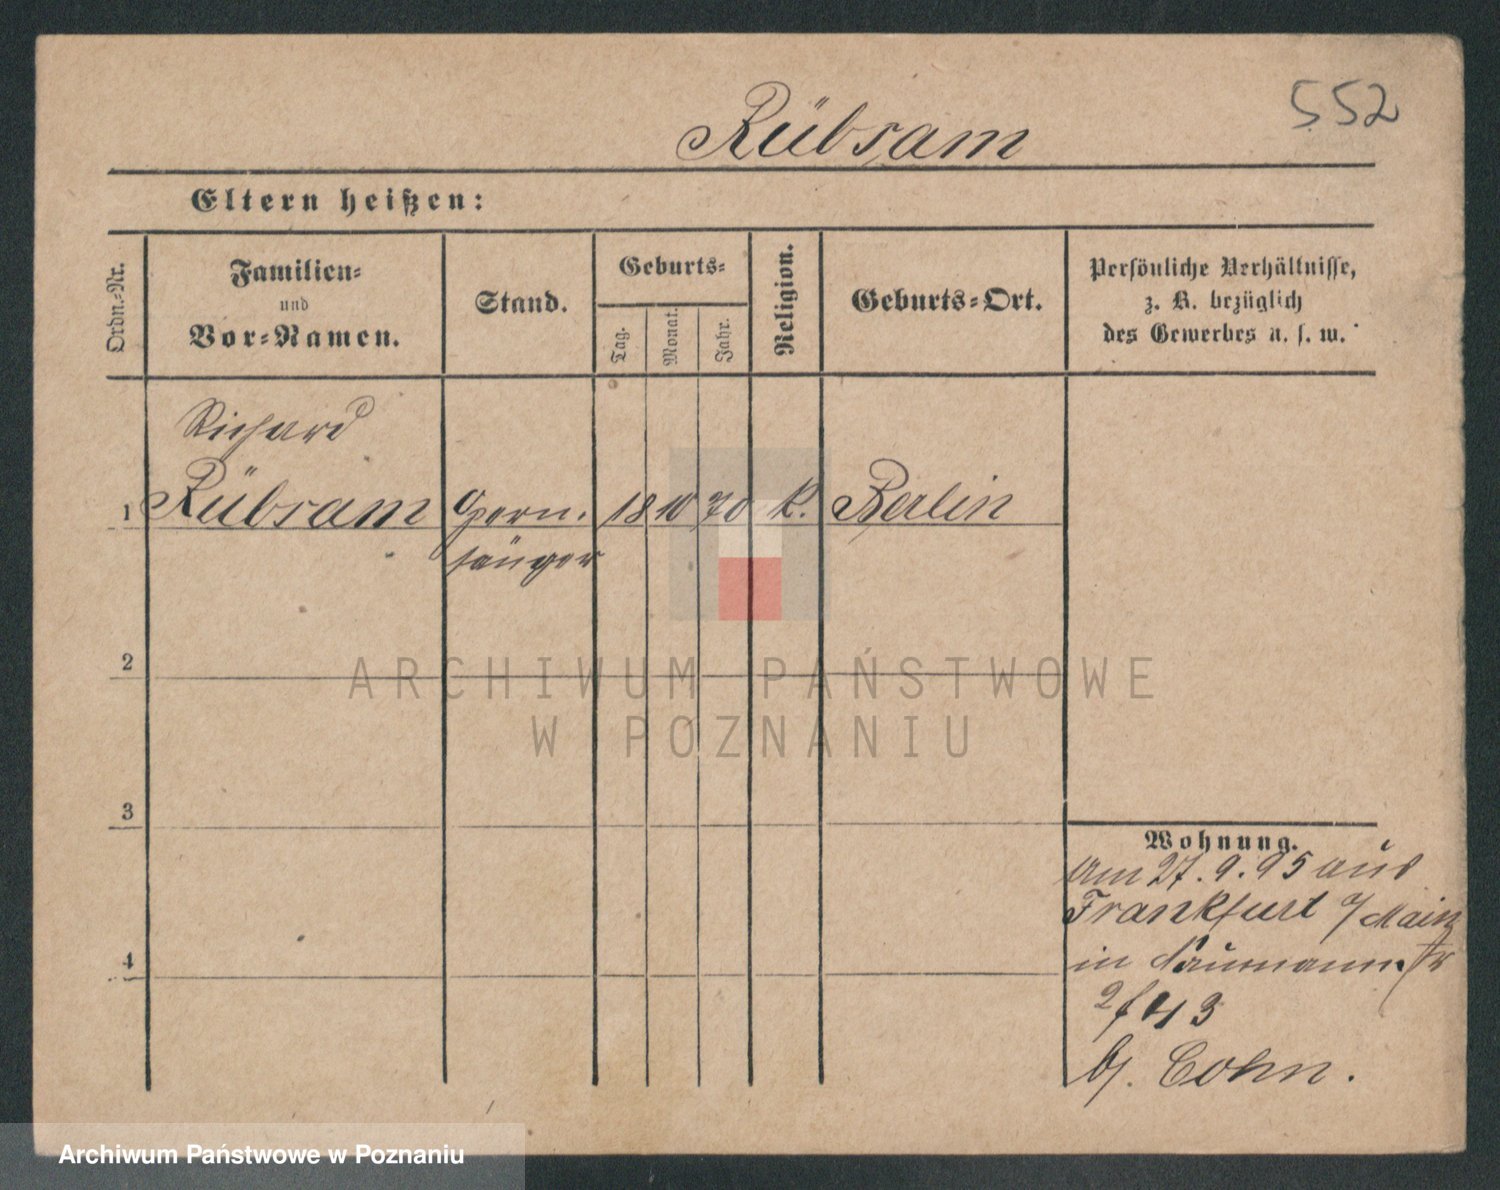 552
Rübsam
Eltern heißen:
Ordn.-Nr.
Familien-
und
Vor-Namen.
Stand.
Geburts-
Tag.
Monat.
Jahr.
Religion.
Geburts-Ort.
Persönliche Verhältnisse,
z. B. bezüglich
des Gewerbes u. s. w.
Richard
1 Rübsam Opern- 18 10 70 K. Berlin
sänger
2
3
4
Wohnung.
am 27.9.95 aus
Frankfurt a/Main
in Naumannstr
43
b/. Cohn.
ARCHIWUM PAŃSTWOWE
W POZNANIU
Archiwum Państwowe w Poznaniu